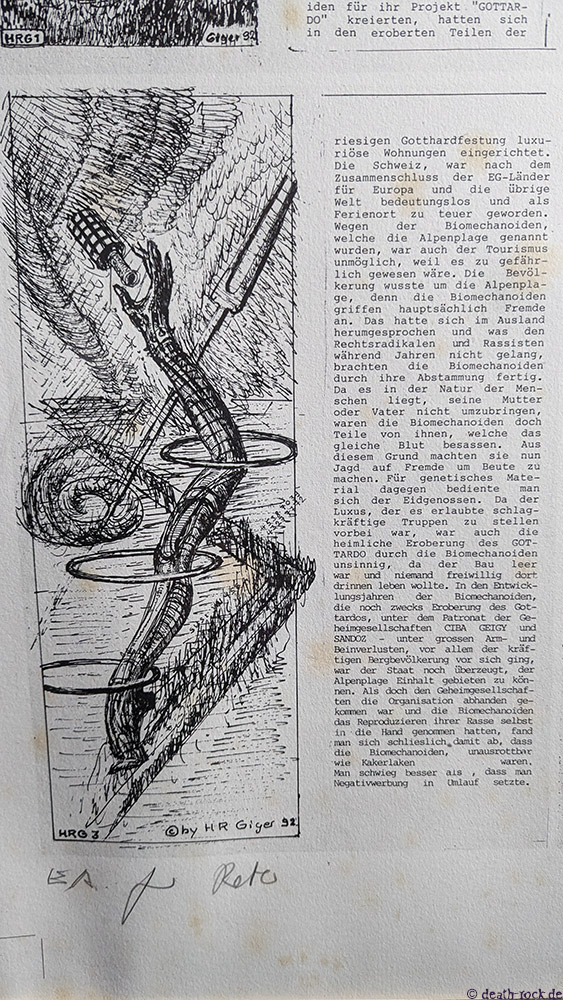 iden für ihr Projekt "GOTTAR-
DO" kreierten, hatten sich
in den eroberten Teilen der
HRG1
Giger 92
riesigen Gotthardfestung luxu-
riöse Wohnungen eingerichtet.
Die Schweiz, war nach dem
Zusammenschluss der EG-Länder
für Europa und die übrige
Welt bedeutungslos und als
Ferienort zu teuer geworden.
Wegen der Biomechanoiden,
welche die Alpenplage genannt
wurden, war auch der Tourismus
unmöglich, weil es zu gefähr-
lich gewesen wäre. Die Bevöl-
kerung wusste um die Alpenpla-
ge, denn die Biomechanoiden
griffen hauptsächlich Fremde
an. Das hatte sich im Ausland
herumgesprochen und was den
Rechtsradikalen und Rassisten
während Jahren nicht gelang,
brachten die Biomechanoiden
durch ihre Abstammung fertig.
Da es in der Natur der Men-
schen liegt, seine Mutter
oder Vater nicht umzubringen,
waren die Biomechanoiden doch
Teile von ihnen, welche das
gleiche Blut besassen. Aus
diesem Grund machten sie nun
Jagd auf Fremde um Beute zu
machen. Für genetisches Mate-
rial dagegen bediente man
sich der Eidgenossen. Da der
Luxus, der es erlaubte schlag-
kräftige Truppen zu stellen
vorbei war, war auch die
heimliche Eroberung des GOT-
TARDO durch die Biomechanoiden
unsinnig, da der Bau leer
war und niemand freiwillig dort
drinnen leben wollte. In den Entwick-
lungsjahren der Biomechanoiden,
die noch zwecks Eroberung des Got-
tardos, unter dem Patronat der Ge-
heimgesellschaften CIBA GEIGY und
SANDOZ - unter grossen Arm- und
Beinverlusten, vor allem der kräf-
tigen Bergbevölkerung vor sich ging,
war der Staat noch überzeugt, der
Alpenplage Einhalt gebieten zu kön-
nen. Als doch den Geheimgesellschaf-
ten die Organisation abhanden ge-
kommen war und die Biomechanoiden
das Reproduzieren ihrer Rasse selbst
in die Hand genommen hatten, fand
man sich schlieslich damit ab, dass
die Biomechanoiden, unausrottbar
wie Kakerlaken waren.
Man schwieg besser als , dass man
Negativwerbung in Umlauf setzte.
HRG 3
© by HR Giger 92
EA. für Reto
© death-rock.de